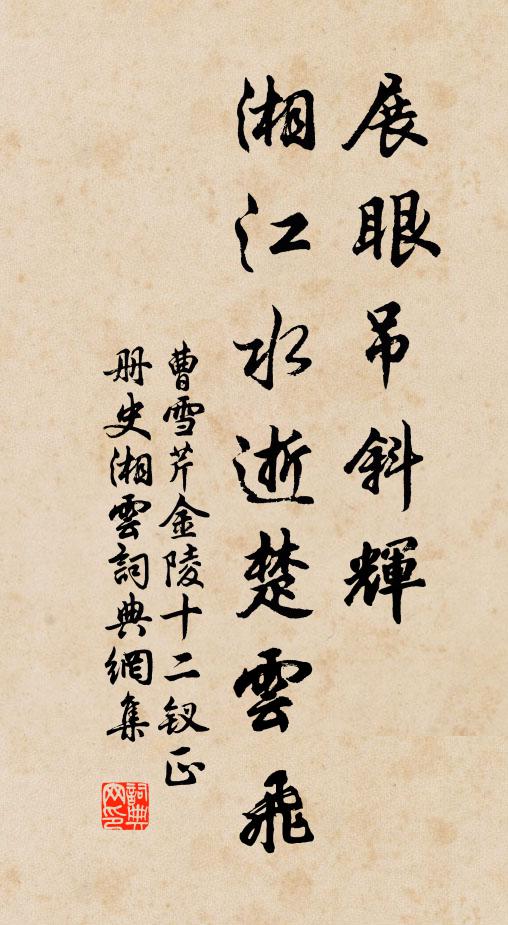 展眼吊斜輝
湘江水逝楚雲飛
曹雪芹金陵十二釵正
册史湘雲詞典網集
詞典
网印